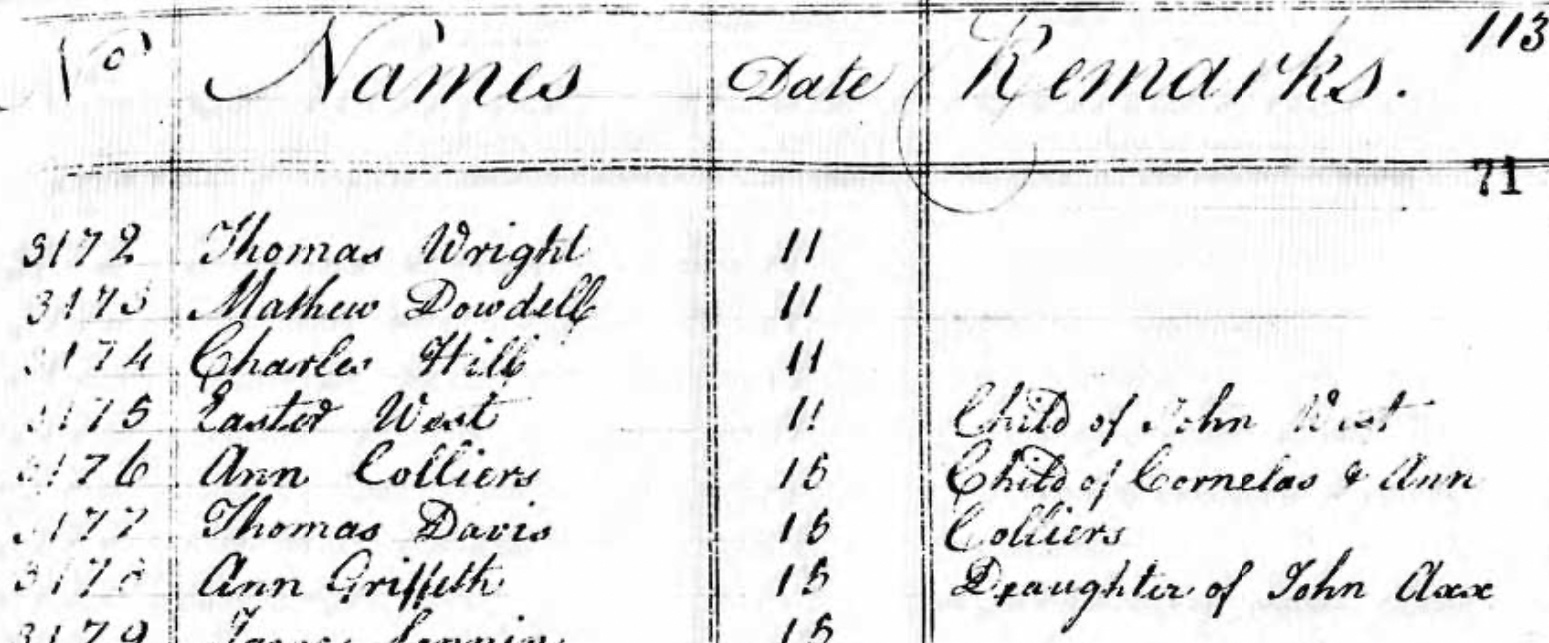 113
No Names Date Remarks.
71
3172 Thomas Wright 11
3173 Mathew Dowdell 11
3174 Charles Hill 11
3175 Easter West 11 Child of John West
3176 Ann Colliers 15 Child of Cornelas & Ann
3177 Thomas Davis 15 Colliers
3178 Ann Griffeth 15 Daughter of John
3179 15